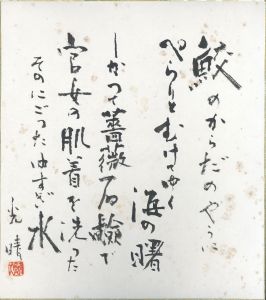 鮫のからだのやうに
ぺらりとむけてゆく
海の曙
しかつて薔薇石鹸で
官女の肌着を洗つた
そのにごつたゆすぎ水
光晴